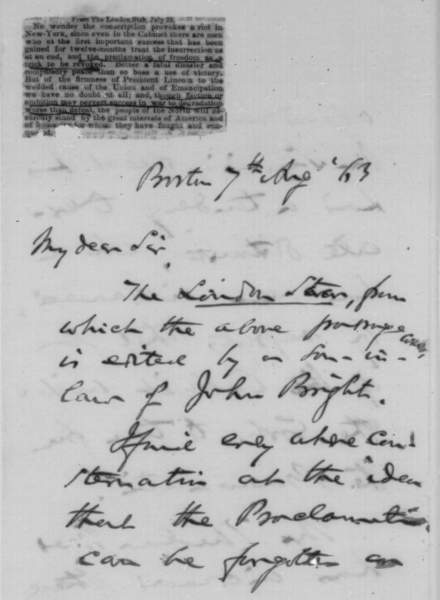 From The London Star, July 23.
No wonder the conscription provokes a riot in
New-York, since even in the Cabinet there are men
who at the first important success that has been
gained for twelve months treat the insurrection as
at an end, and the proclamation of freedom as a
to be revoked. Better a fatal disaster and
compulsory peace than so base a use of victory.
But of the firmness of President Lincoln to the
wedded cause of the Union and of Emancipation
we have no doubt at all; and, though faction or
ambition may pervert success in war to degradation
worse than defeat, the people of the North will
stand by the great interests of America and
of for whom they have fought and
Boston 7th Aug '63
My dear Sir,
The London Star, from
which the above passage comes,
is edited by a son-in-
law of John Bright.
I find every where con-
sternation at the idea
that the Proclamation
can be forgotten or